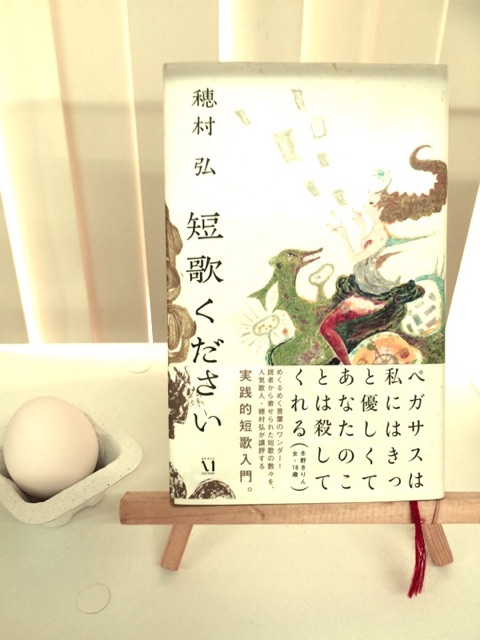 穂村 弘
短歌ください
ペガサスは
私にはきっ
と優しくて
あなたのこ
とは殺して
くれる
(冬野きりん
女・18歳)
めくるめく言葉のワンダー!
読者から寄せられた短歌の数々を、
人気歌人・穂村弘が講評する
実践的短歌入門。